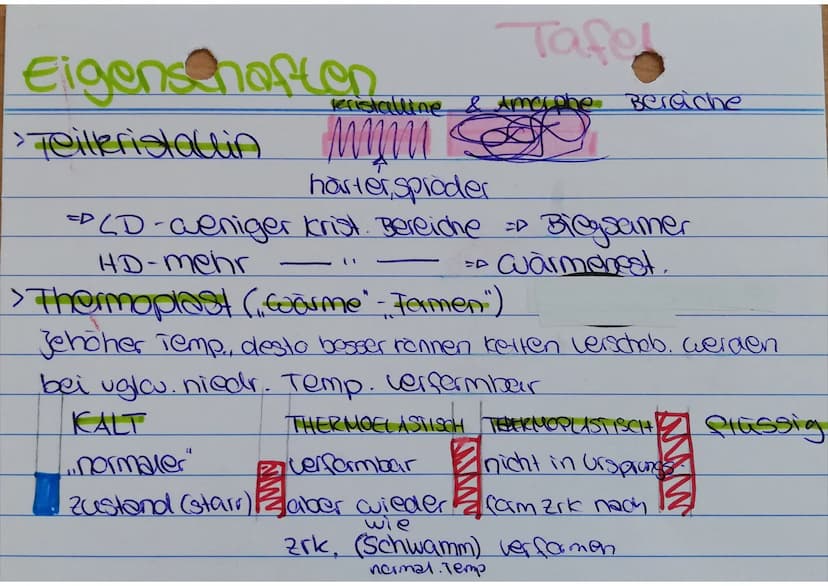 Tafel
Eigenschaften
kristalline & Amorphe Bereiche
> Teilkristallin
härter, spröder
=> LD - weniger krist. Bereiche => Biegsamer
HD - mehr — " — => Wärmebest.
> Thermoplast („Wärme“-„Formen“)
Je höher Temp., desto besser können Ketten verschob. werden
bei vglw. niedr. Temp. verformbar
KALT THERMOELASTISCH THERMOPLASTISCH flüssig
„normaler“ verformbar nicht in Ursprungs-
Zustand (starr) aber wieder form zrk nach
wie
zrk, (Schwamm) verformen
normal. Temp